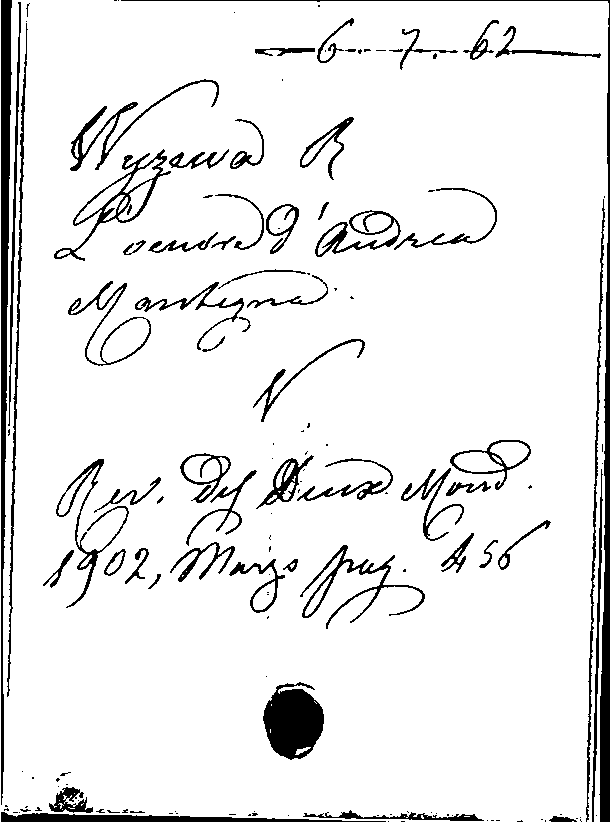 6. 7. 62
Wyzewa R
L'oeuvre d'Andrea
Mantegna.
V
Rev. des Deux Mond.
1902, Marzo pag. 456